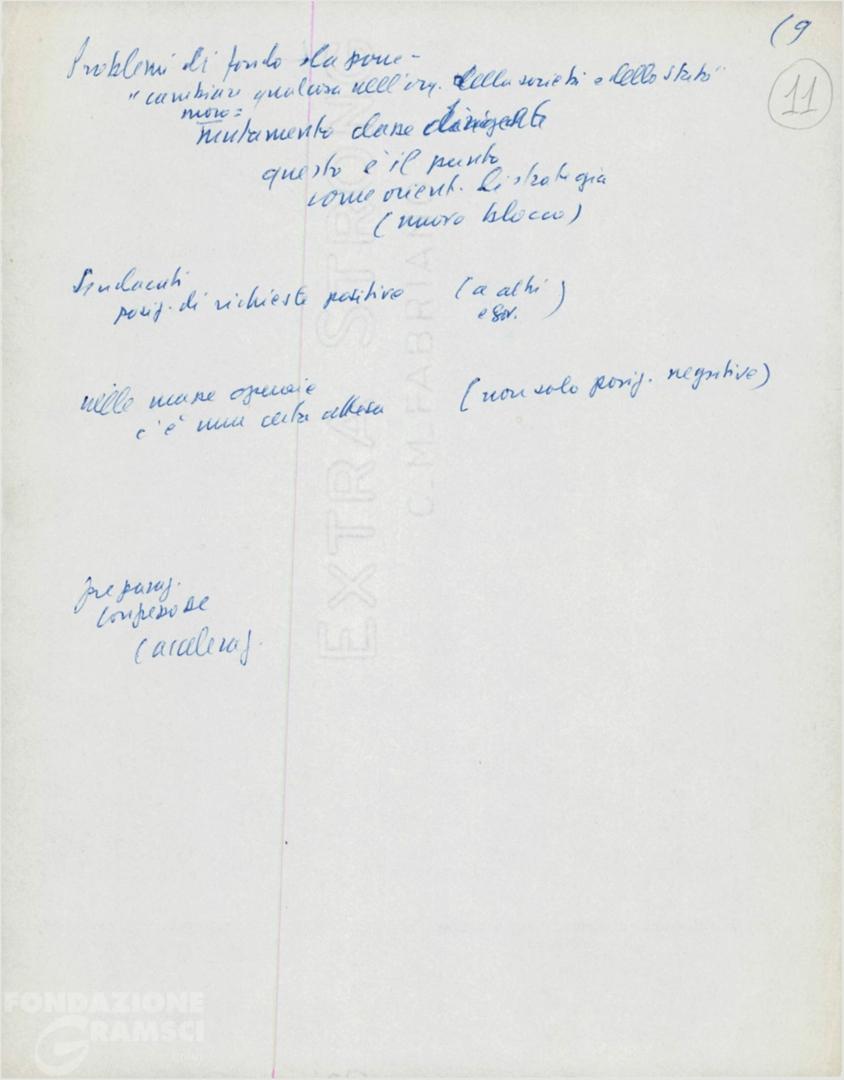 (9
11
Problemi di fondo da porre -
"cambiare qualcosa nell'org. della società e dello Stato"
moro =
mutamento classe dirigente
questo è il punto
come orient. di strategia
(nuovo blocco)
Sindacati
posiz. di richieste positive (a altri
e gov.)
nelle masse operaie (non solo posiz. negative)
c'è una certa attesa
preparaz.
congresso
(acceleraz.
EXTRA STRONG
C.M. FABRIANO
FONDAZIONE
GRAMSCI